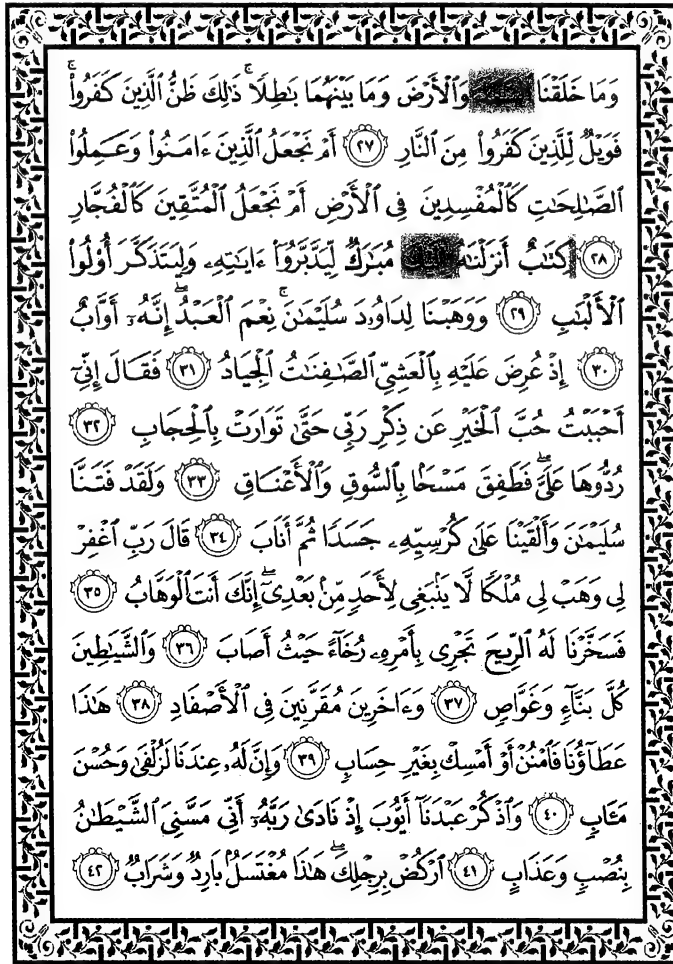 وَمَا خَلَقْنَا وَٱلْأَرْضَ وَمَا بَيْنَهُمَا بَٰطِلًا ۚ ذَٰلِكَ ظَنُّ ٱلَّذِينَ كَفَرُوا۟ ۚ
فَوَيْلٌ لِّلَّذِينَ كَفَرُوا۟ مِنَ ٱلنَّارِ ٢٧ أَمْ نَجْعَلُ ٱلَّذِينَ ءَامَنُوا۟ وَعَمِلُوا۟
ٱلصَّٰلِحَٰتِ كَٱلْمُفْسِدِينَ فِى ٱلْأَرْضِ أَمْ نَجْعَلُ ٱلْمُتَّقِينَ كَٱلْفُجَّارِ
٢٨ كِتَٰبٌ أَنزَلْنَٰهُ مُبَٰرَكٌ لِّيَدَّبَّرُوٓا۟ ءَايَٰتِهِۦ وَلِيَتَذَكَّرَ أُو۟لُوا۟
ٱلْأَلْبَٰبِ ٢٩ وَوَهَبْنَا لِدَاوُۥدَ سُلَيْمَٰنَ ۚ نِعْمَ ٱلْعَبْدُ ۖ إِنَّهُۥٓ أَوَّابٌ
٣٠ إِذْ عُرِضَ عَلَيْهِ بِٱلْعَشِىِّ ٱلصَّٰفِنَٰتُ ٱلْجِيَادُ ٣١ فَقَالَ إِنِّىٓ
أَحْبَبْتُ حُبَّ ٱلْخَيْرِ عَن ذِكْرِ رَبِّى حَتَّىٰ تَوَارَتْ بِٱلْحِجَابِ ٣٢
رُدُّوهَا عَلَىَّ ۖ فَطَفِقَ مَسْحًۢا بِٱلسُّوقِ وَٱلْأَعْنَاقِ ٣٣ وَلَقَدْ فَتَنَّا
سُلَيْمَٰنَ وَأَلْقَيْنَا عَلَىٰ كُرْسِيِّهِۦ جَسَدًا ثُمَّ أَنَابَ ٣٤ قَالَ رَبِّ ٱغْفِرْ
لِى وَهَبْ لِى مُلْكًا لَّا يَنۢبَغِى لِأَحَدٍ مِّنۢ بَعْدِىٓ ۖ إِنَّكَ أَنتَ ٱلْوَهَّابُ ٣٥
فَسَخَّرْنَا لَهُ ٱلرِّيحَ تَجْرِى بِأَمْرِهِۦ رُخَآءً حَيْثُ أَصَابَ ٣٦ وَٱلشَّيَٰطِينَ
كُلَّ بَنَّآءٍ وَغَوَّاصٍ ٣٧ وَءَاخَرِينَ مُقَرَّنِينَ فِى ٱلْأَصْفَادِ ٣٨ هَٰذَا
عَطَآؤُنَا فَٱمْنُنْ أَوْ أَمْسِكْ بِغَيْرِ حِسَابٍ ٣٩ وَإِنَّ لَهُۥ عِندَنَا لَزُلْفَىٰ وَحُسْنَ
مَـَٔابٍ ٤٠ وَٱذْكُرْ عَبْدَنَآ أَيُّوبَ إِذْ نَادَىٰ رَبَّهُۥٓ أَنِّى مَسَّنِىَ ٱلشَّيْطَٰنُ
بِنُصْبٍ وَعَذَابٍ ٤١ ٱرْكُضْ بِرِجْلِكَ ۖ هَٰذَا مُغْتَسَلٌۢ بَارِدٌ وَشَرَابٌ ٤٢